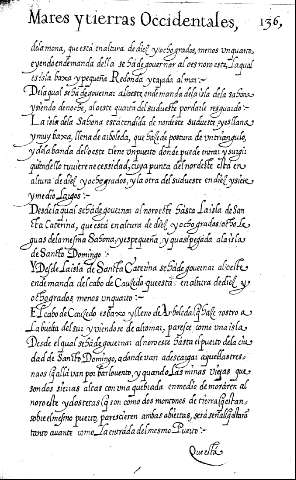 Mares y tierras Occidentales, 136,
dela mona, que está en altura de diez y ocho grados, menos un quarto,
y yendo en demanda della se ha de governar al oesnoroeste, la qual
es isla baxa y pequeña Redonda y tajada al mar:~
Dela qual se ha de governar al oeste en demanda dela isla dela saona
y siendo de noche, al oeste quarta del sudueste por dalle resguardo:~
La isla dela Saona esta tendida de nordeste sudueste, y es llana
y muy baxa, llena de arboleda, que haze de postura de un triangulo,
y ala banda del oeste tiene un puerto donde puede entrar y surgir
quien dello tuviere necessidad, cuya punta del nordeste está en
altura de diez y ocho grados, y la otra del sudueste en diez y siete
y medio Largos:~
Desde la qual se ha de governar al noroeste hasta La isla de San
cta Caterina, que está en altura de diez y ocho grados,
guas dela mesma Saona, y es pequeña, y quasi pegada ala isla
de Sancto Domingo:~
Y Desde La isla de Sancta Caterina se ha de governar al oeste
en demanda del cabo de Caucedo que está en altura de diez y
ocho grados menos un quarto:~
El cabo de Caucedo es baxo y lleno de Arboleda, q haze rostro a
La buelta del sur, y viendose de altomar, paresce como una isla
Desde el qual se ha de governar al noroeste hasta el puerto dela ciu
dad de Sancto Domingo, adonde van a descargar aquellas tres
naos q alla van por barlovento, y quando Las minas viejas que
son dos sierras altas con una quebrada en medio de moraren al
noroeste y dos tetas q son como dos montones de tierra q estan
sobre el mesmo puerto, parescieren ambas abiertas, será señal q estará
tanto avante como La entrada del mesmo Puerto:~
Que está